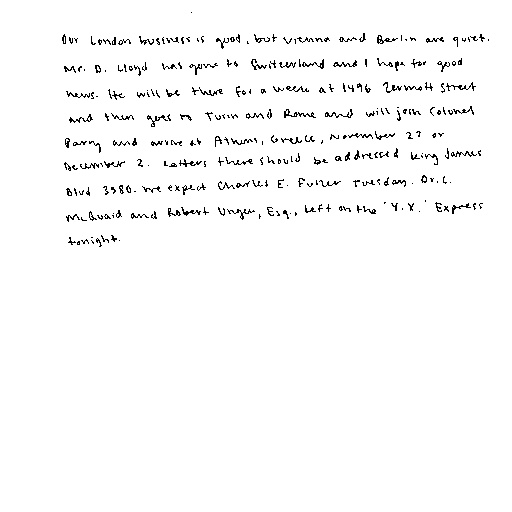 Our London business is good, but Vienna and Berlin are quiet.
Mr. D. Lloyd has gone to Switzerland and I hope for good
news. He will be there for a week at 1496 Zermott Street
and then goes to Turin and Rome and will join Colonel
Parry and arrive at Athens, Greece, November 27 or
December 2. Letters there should be addressed King James
Blvd 3580. We expect Charles E. Fuller Tuesday. Dr. L.
McQuaid and Robert Unger, Esq., left on the 'Y.X.' Express
tonight.